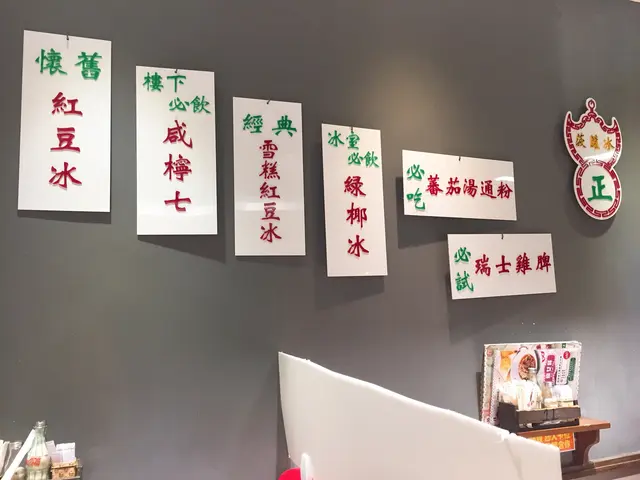 懷舊
紅豆冰
樓下
必飲
咸檸七
經典
雪糕紅豆冰
冰室
必飲
綠椰冰
必吃
蕃茄湯通粉
必試
瑞士雞脾
正